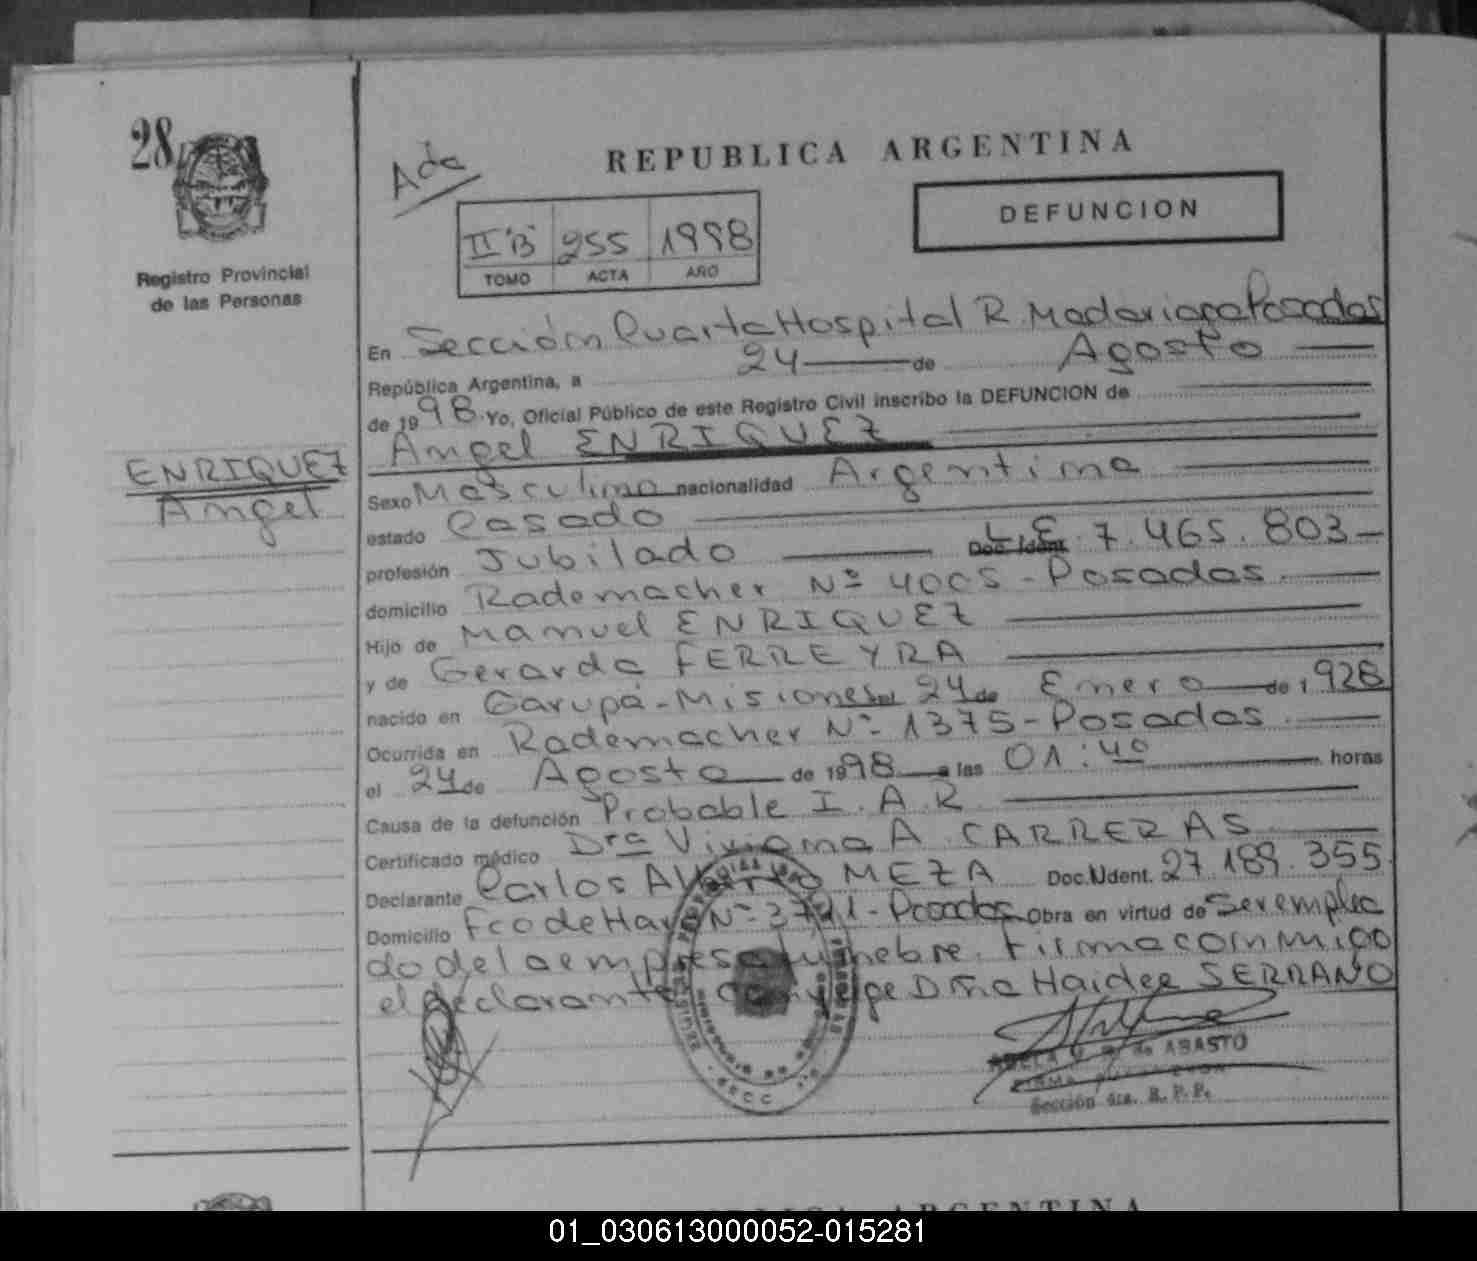 28
Registro Provincial
de las Personas
ENRIQUEZ
Angel
REPUBLICA ARGENTINA
DEFUNCION
II "B" 255 1998
TOMO ACTA AÑO
En Sección Cuarta Hospital R. Madariaga Posadas
República Argentina, a 24 de Agosto
de 1998. Yo, Oficial Público de este Registro Civil inscribo la DEFUNCION de
Angel ENRIQUEZ
Sexo Masculino nacionalidad Argentina
estado Casado
profesión Jubilado Doc. Ident. L.E. 7.465.803
domicilio Rademacher Nº 4005 - Posadas
Hijo de Manuel ENRIQUEZ
y de Gerarda FERREYRA
nacido en Garupá - Misiones el 24 de Enero de 1,928
Ocurrida en Rademacher Nº 1375 - Posadas
el 24 de Agosto de 1998 a las 01:40 horas
Causa de la defunción Probable I.A.R
Certificado médico Dra Viviana A. CARRERAS
Declarante Carlos Alberto MEZA Doc. Ident. 27.189.355
Domicilio Fco de Haro Nº 3741 - Posadas Obra en virtud de Ser emplea
do de la empresa fúnebre. Firma conmigo
el declarante. Conyuge Dña Haidee SERRANO
de ABASTO
Sección 4ta. R. P. P.
REPUBLICA ARGENTINA
01_030613000052-015281